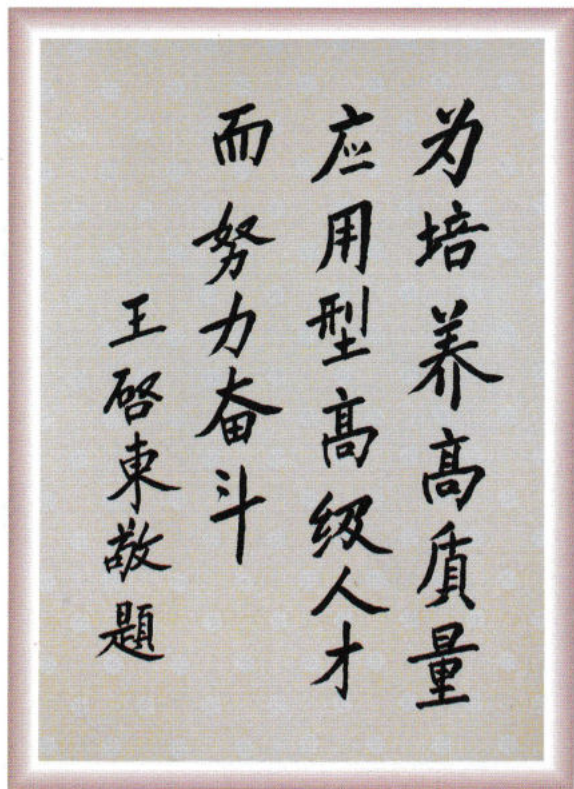 为培养高质量
应用型高级人才
而努力奋斗
王啓東敬题